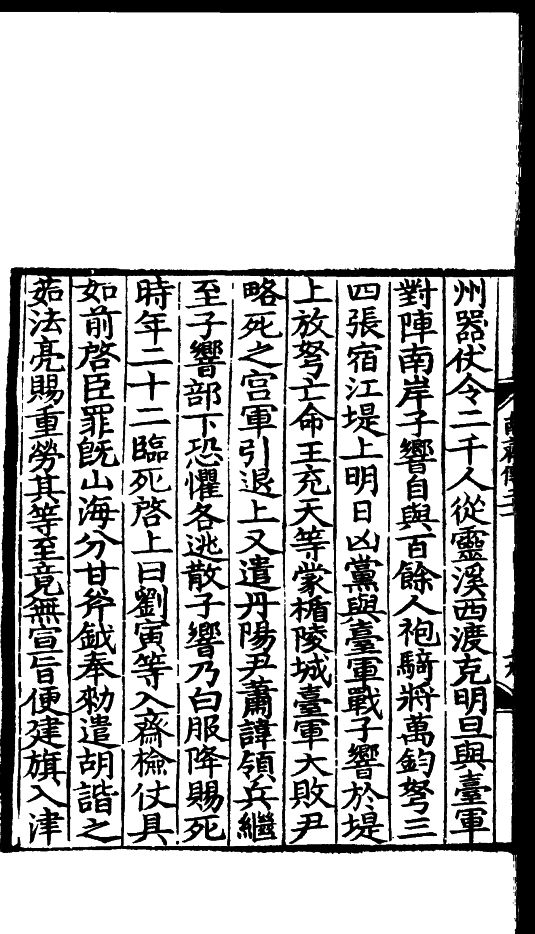 州器仗令二千人從靈溪西渡克明旦與臺軍
對陣南岸子響自與百餘人袍騎將萬鈞弩三
四張宿江堤上明日凶黨與臺軍戰子響於堤
上放弩亡命王充天等蒙楯陵城臺軍大敗尹
略死之官軍引退上又遣丹陽尹蕭諱領兵繼
至子響部下恐懼各逃散子響乃白服降賜死
時年二十二臨死啓上曰劉寅等入齋檢仗具
如前啓臣罪旣山海分甘斧鉞奉勑遣胡諧之
茹法亮賜重勞其等至竟無宣旨便建旗入津